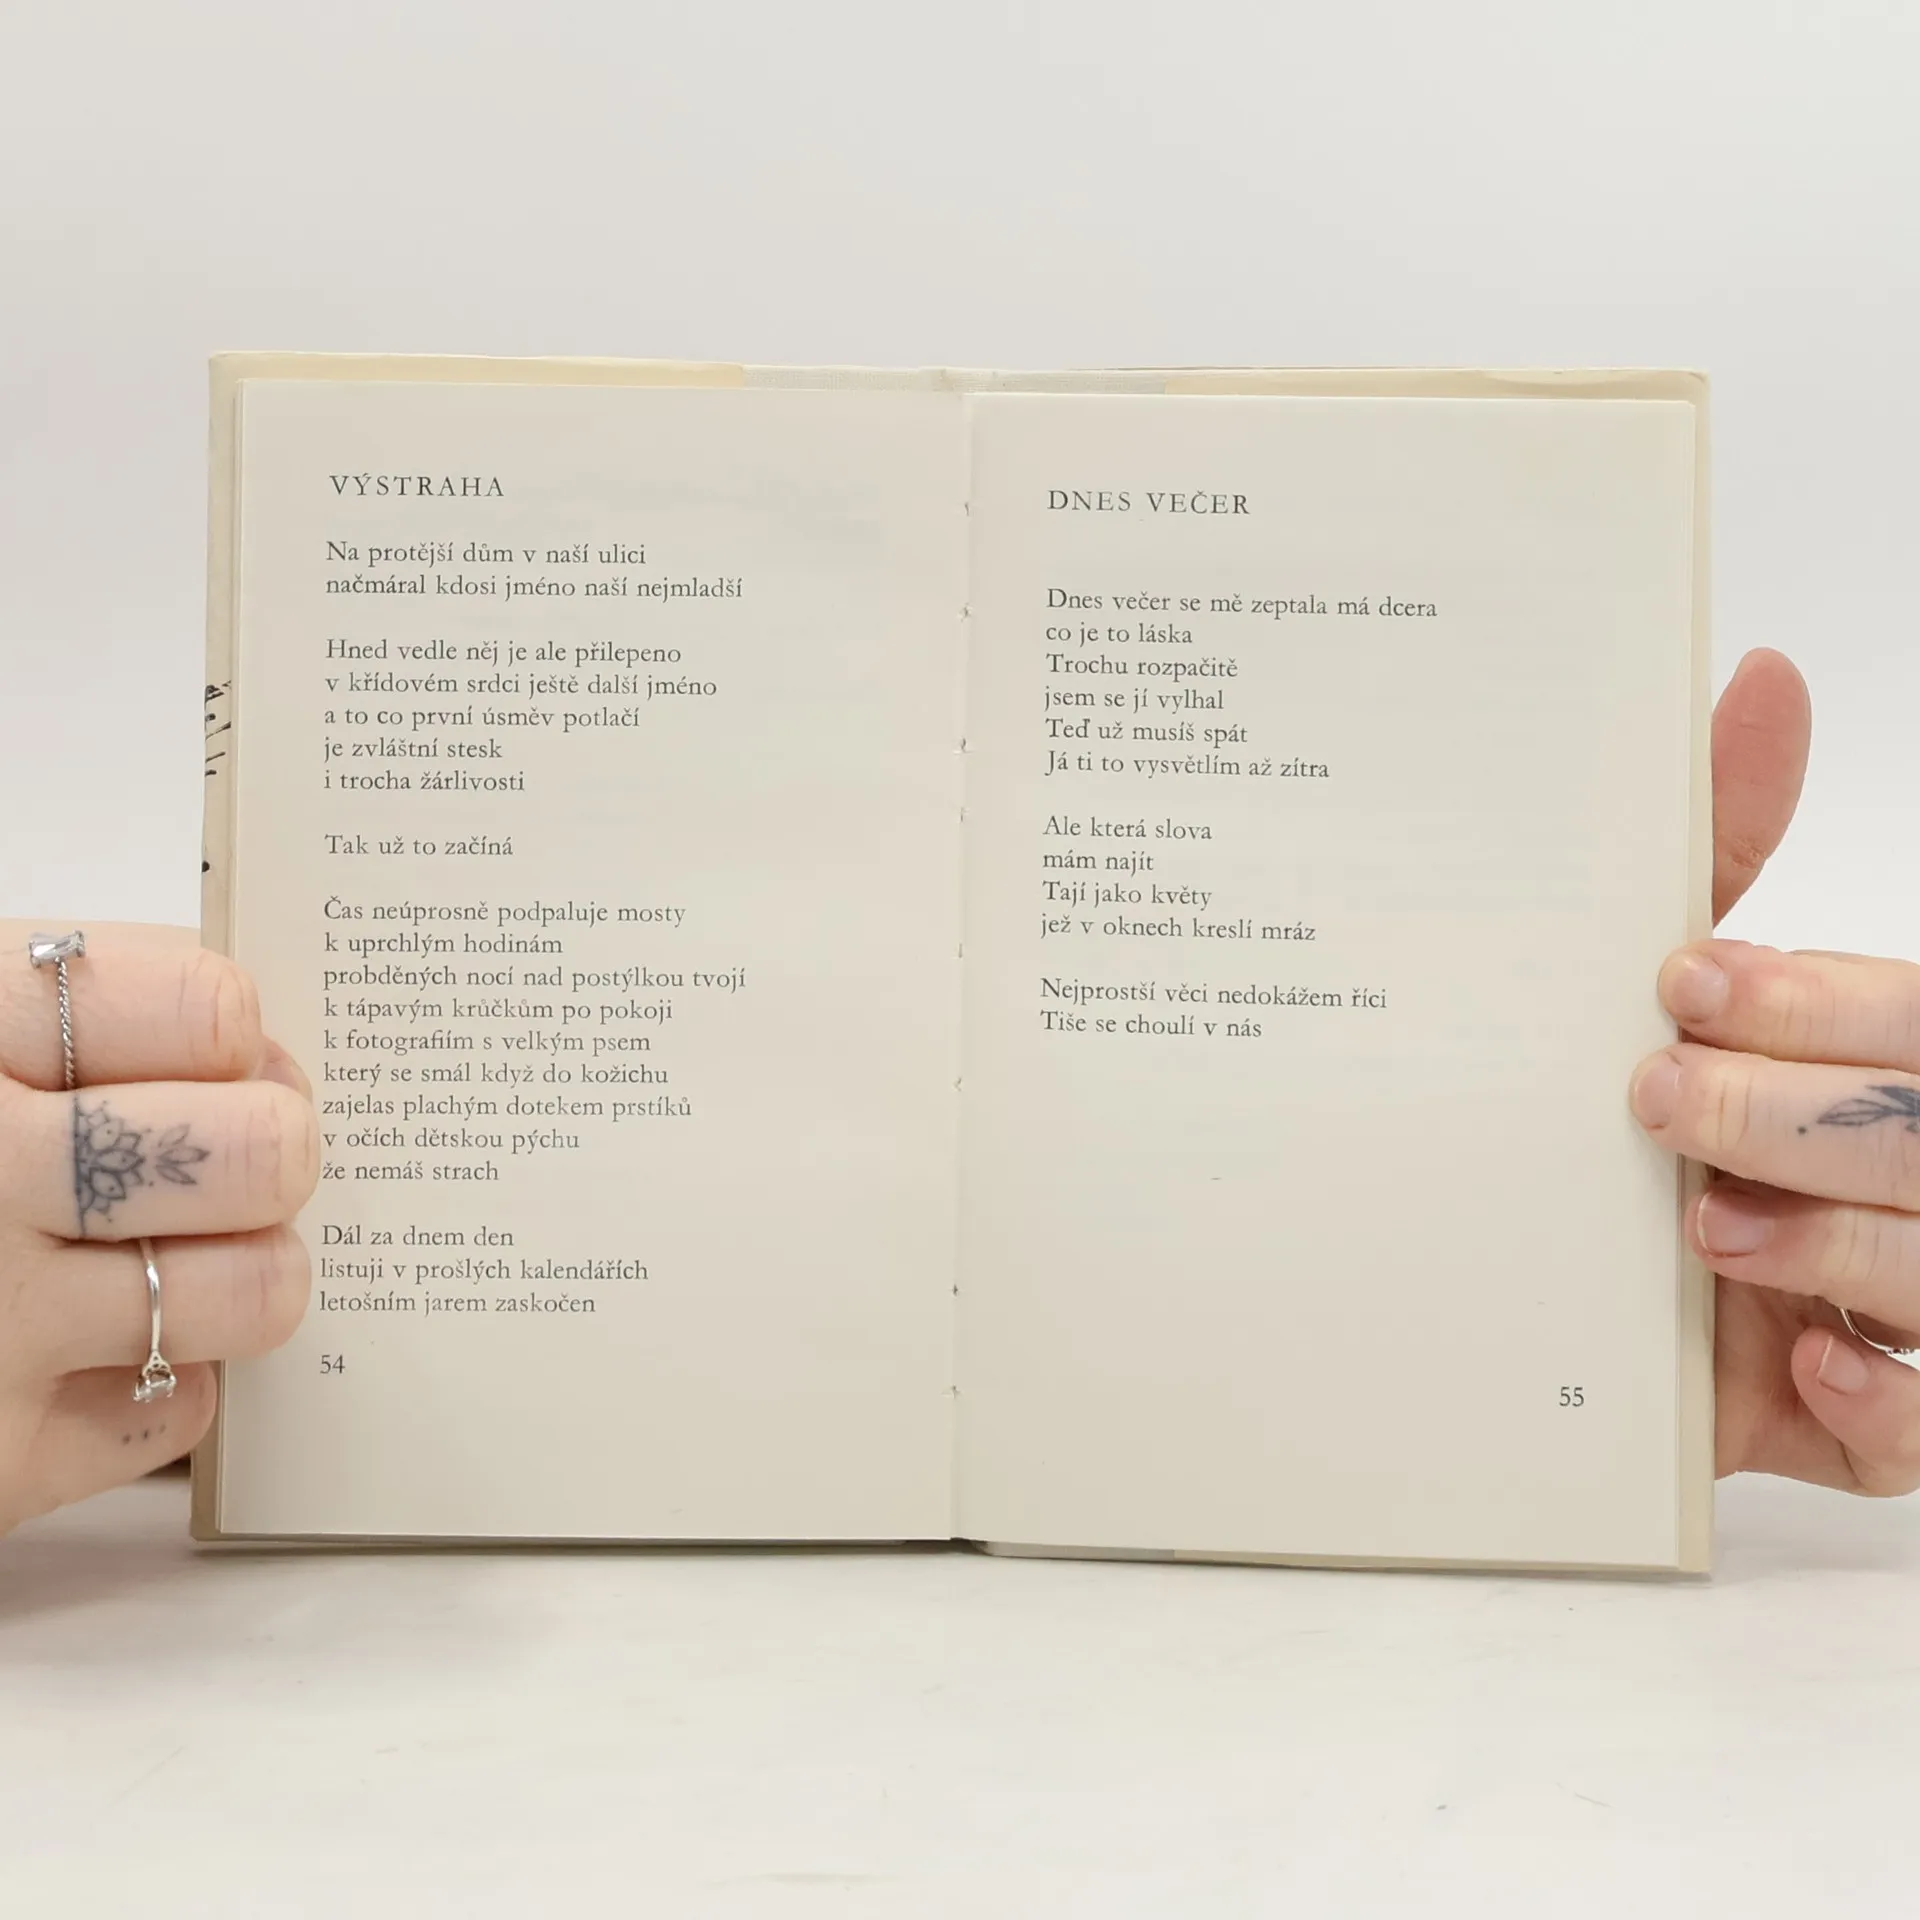 VÝSTRAHA
Na protější dům v naší ulici
načmáral kdosi jméno naší nejmladší
Hned vedle něj je ale přilepeno
v křídovém srdci ještě další jméno
a to co první úsměv potlačí
je zvláštní stesk
i trocha žárlivosti
Tak už to začíná
Čas neúprosně podpaluje mosty
k uprchlým hodinám
probděných nocí nad postýlkou tvojí
k tápavým krůčkům po pokoji
k fotografiím s velkým psem
který se smál když do kožichu
zajelas plachým dotekem prstíků
v očích dětskou pýchu
že nemáš strach
Dál za dnem den
listuji v prošlých kalendářích
letošním jarem zaskočen
54
DNES VEČER
Dnes večer se mě zeptala má dcera
co je to láska
Trochu rozpačitě
jsem se jí vylhal
Teď už musíš spát
Já ti to vysvětlím až zítra
Ale která slova
mám najít
Tají jako květy
jež v oknech kreslí mráz
Nejprostší věci nedokážem říci
Tiše se choulí v nás
55